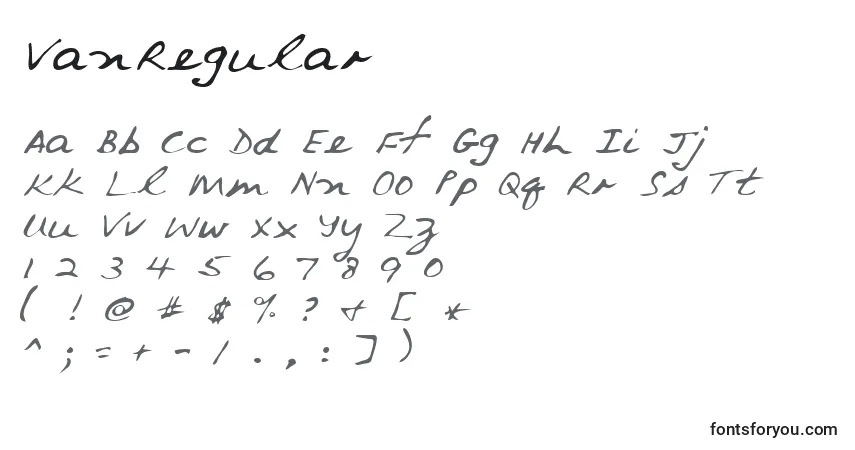 VanRegular
Aa Bb Cc Dd Ee Ff Gg Hh Ii Jj
Kk Ll Mm Nn Oo Pp Qq Rr Ss Tt
Uu Vv Ww Xx Yy Zz
1 2 3 4 5 6 7 8 9 0
( ! @ # $ % ? & [ *
^ ; = + - / . , : ] )
fontsforyou.com